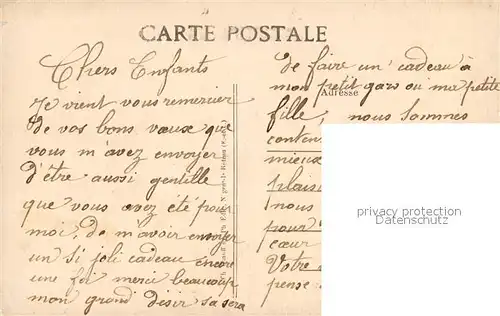 CARTE POSTALE
Chers Enfants
Je vient vous remercier
de vos bons vœux que
vous m'avez envoyer
d'être aussi gentille
que vous avez été pour
moi, de m'avoir envoyer
un si joli cadeau encore
une foi merci beaucoup
mon grand désir sa sera
de faire un cadeau à
mon petit gars ou ma petite
Adresse
fille, nous sommes
conten
mieux
plaisi
nous
pour
cœur
Votre
pense
privacy protection
Datenschutz